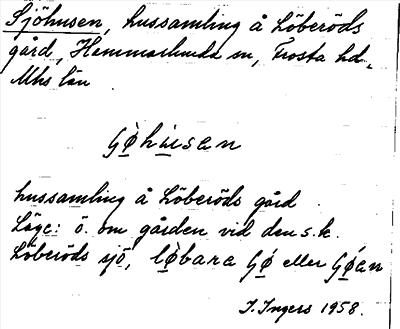 Sjöhusen, hussamling å Löberöds
gård, Hammarlunda sn, Frosta hd,
Mhs län
Gø̀hu̇sen
hussamling å Löberöds gård
Läge: ö. om gården vid den s.k.
Löberöds sjö, lø̀bara Gǿ eller Gǿan
I. Ingers 1958.